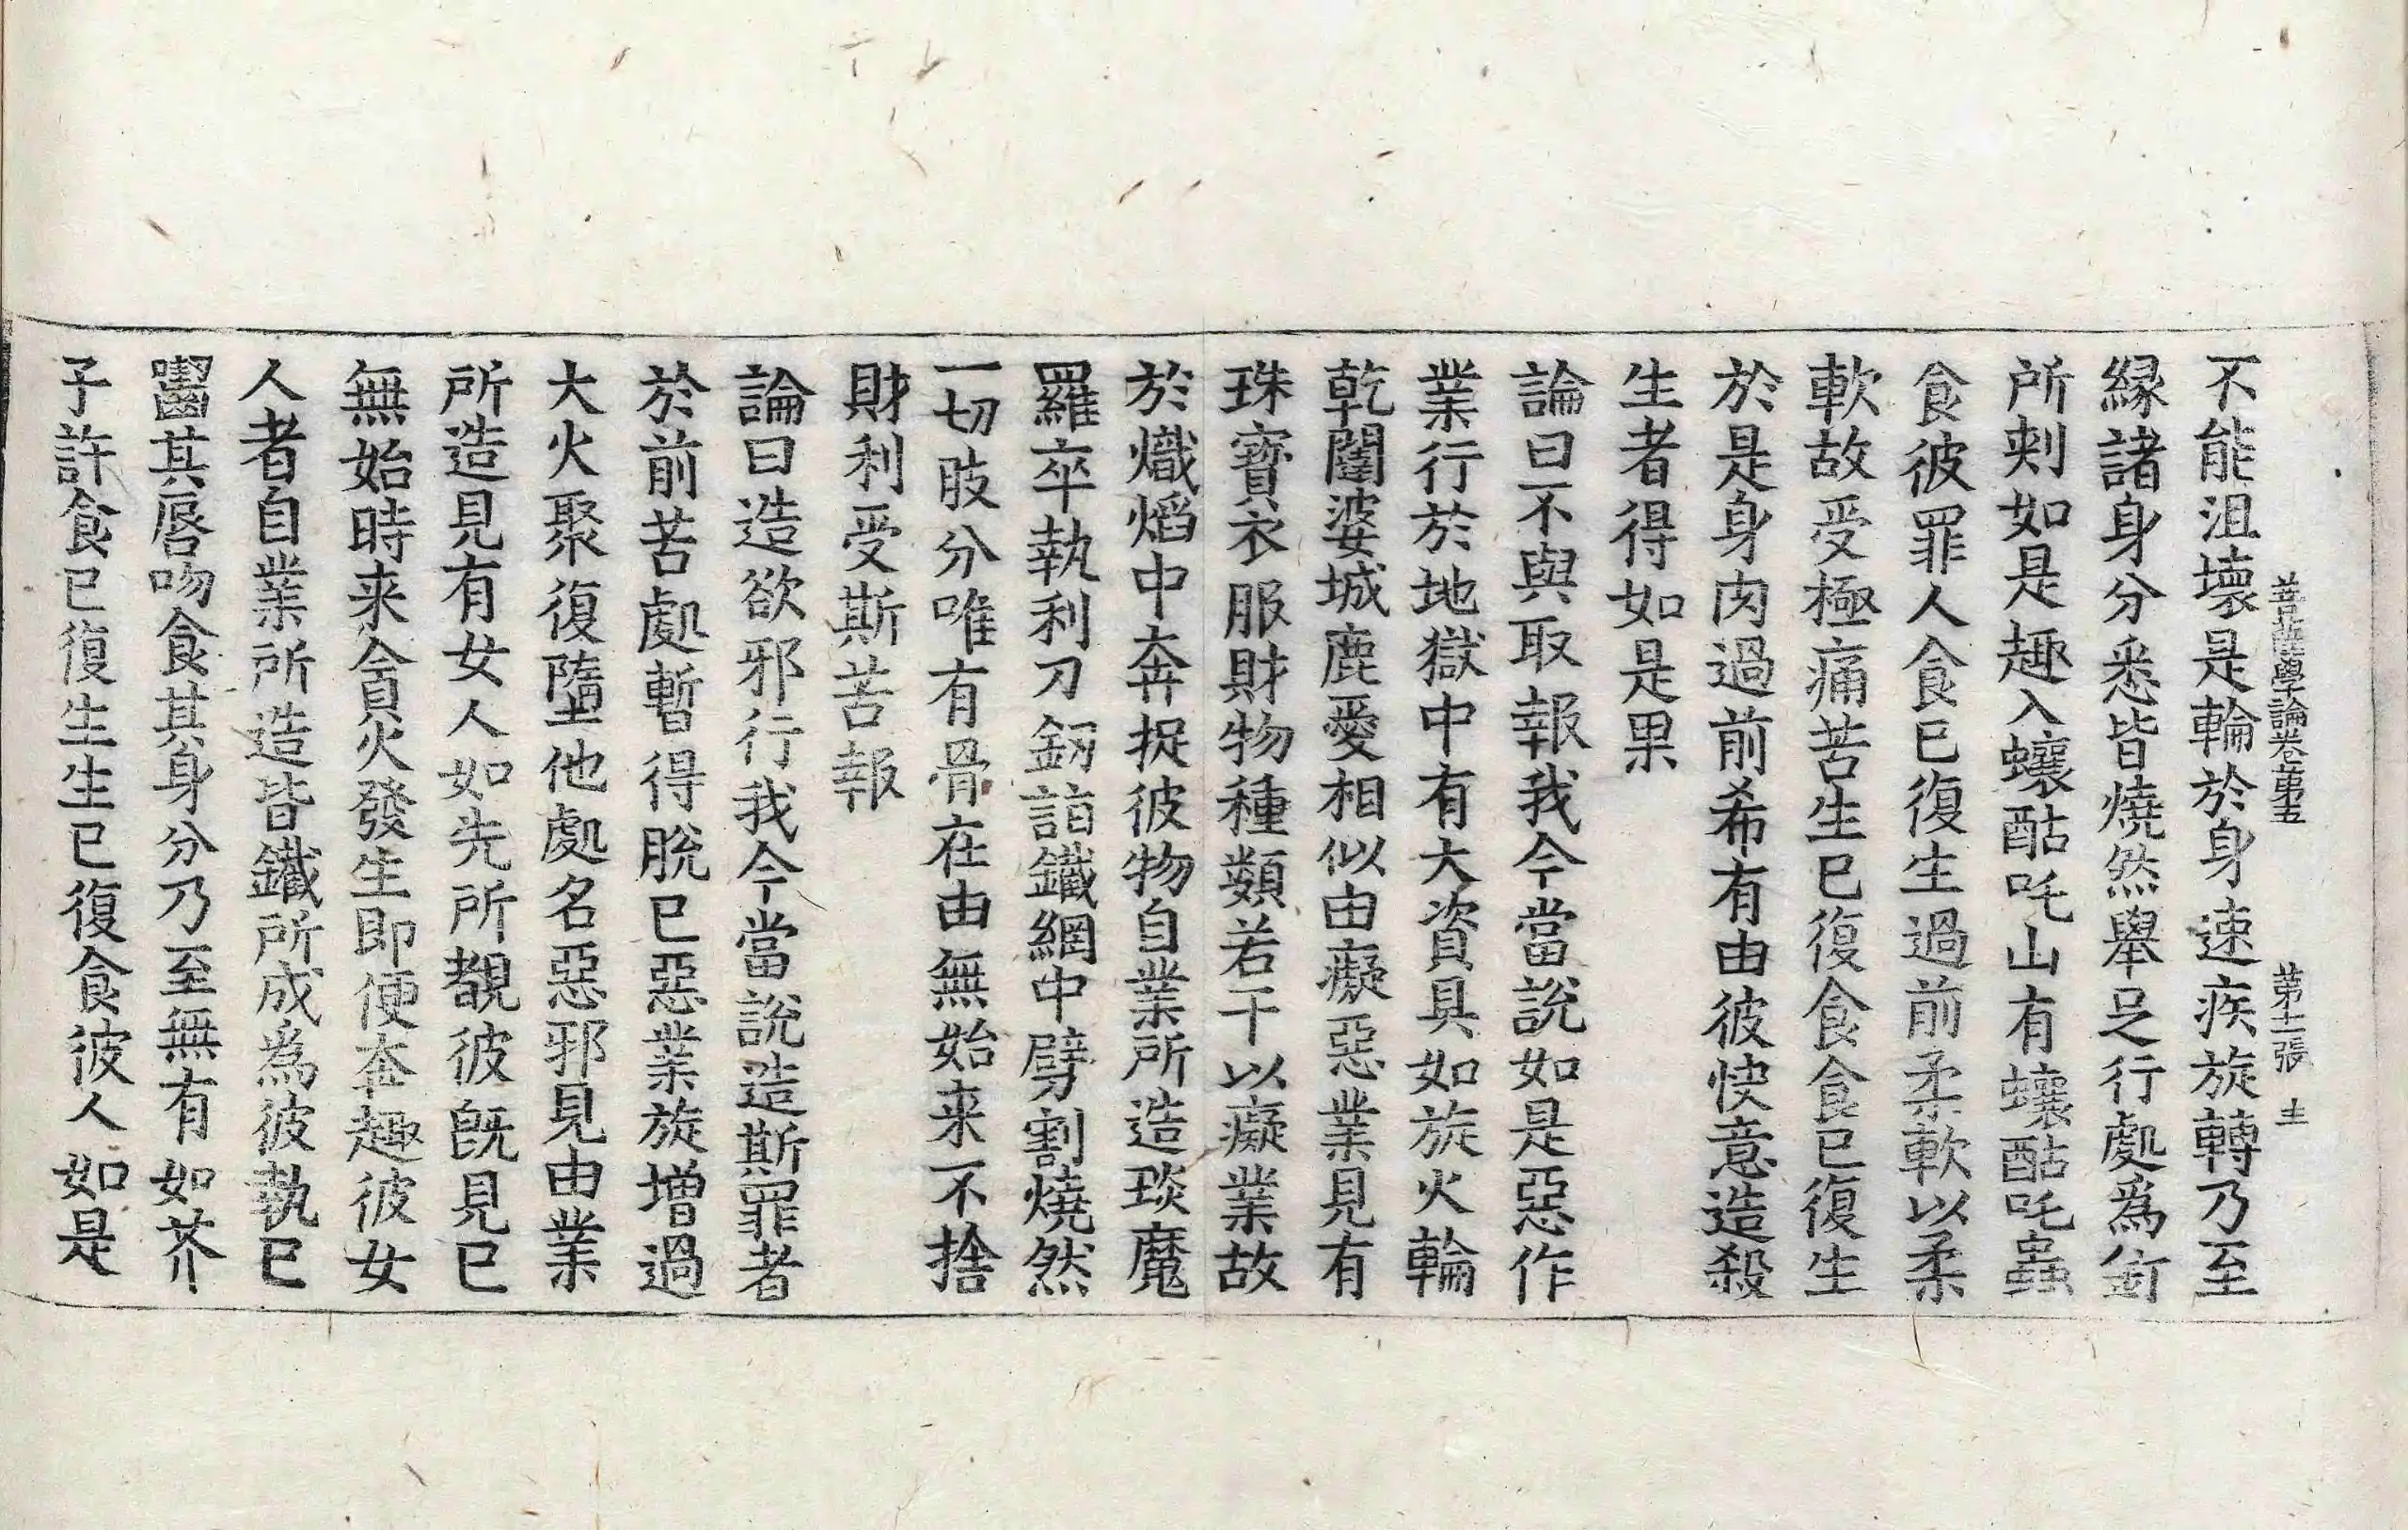 菩薩學論卷第五 第十二張 圭
不能沮壞是輪於身速疾旋轉乃至
縁諸身分悉皆燒然舉足行處爲
所刾如是趣入蠰䣩吒山有蠰䣩吒蟲
食彼罪人食已復生過前柔軟以柔
軟故受極痛苦生已復食食已復生
於是身肉過前希有由彼快意造殺
生者得如是果
論曰不與取報我今當說如是惡作
業行於地獄中有大資具如旋火輪
乾闥婆城鹿愛相似由癡惡業見有
珠寶衣服財物種類若干以癡業故
於熾熖中奔捉彼物自業所造琰魔
羅卒執利刀釰詣鐵網中劈割燒然
一切肢分唯有骨在由無始来不捨
財利受斯苦報
論曰造欲邪行我今當說造斯罪者
於前苦處暫得脫已惡業旋增過
大火聚復墮他處名惡邪見由業
所造見有女人如先所覩彼旣見已
無始時来貪火發生即便奔趣彼女
人者自業所造皆鐵所成爲彼執已
齧其唇吻食其身分乃至無有如芥
子許食已復生生已復食彼人如是